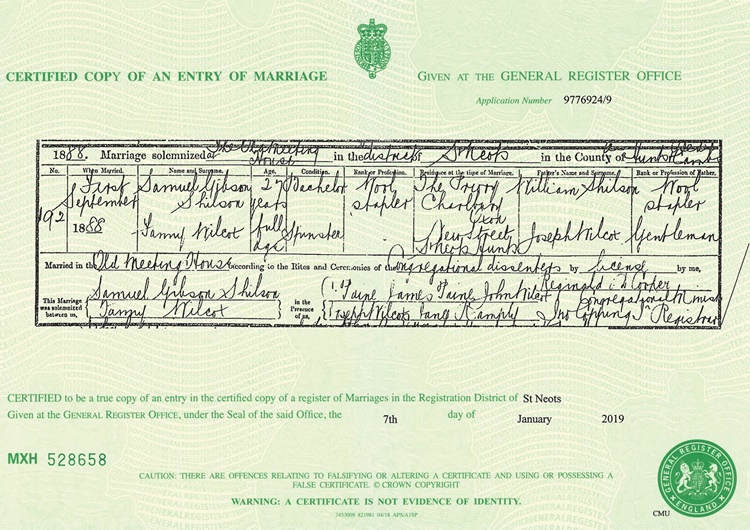 CERTIFIED COPY OF AN ENTRY OF MARRIAGE
GIVEN AT THE GENERAL REGISTER OFFICE
Application Number 9776924/9
1888. Marriage solemnized at The Old Meeting House in the district of St Neots in the County of Hunts
No. When Married. Name and Surname. Age. Condition. Rank or Profession. Residence at the time of Marriage. Father's Name and Surname. Rank or Profession of Father.
192 First September 1888 Samuel Gibson Shilson 27 years Bachelor Wool stapler The Priory Charlbury Oxon William Shilson Wool stapler
Fanny Wilcox full age Spinster New Street St Neots Hunts Joseph Wilcox Gentleman
Married in the Old Meeting House according to the Rites and Ceremonies of the Congregational dissenters by license by me,
Reginald Cooper
Congregational Minister
This Marriage was solemnized between us, Samuel Gibson Shilson
Fanny Wilcox
in the Presence of us, Paine James Paine John Wilcox
Joseph Wilcox
Copping Registrar
CERTIFIED to be a true copy of an entry in the certified copy of a register of Marriages in the Registration District of St Neots
Given at the GENERAL REGISTER OFFICE, under the Seal of the said Office, the 7th day of January 2019
MXH 528658
CAUTION: THERE ARE OFFENCES RELATING TO FALSIFYING OR ALTERING A CERTIFICATE AND USING OR POSSESSING A
FALSE CERTIFICATE. © CROWN COPYRIGHT
WARNING: A CERTIFICATE IS NOT EVIDENCE OF IDENTITY.
GENERAL REGISTER OFFICE
ENGLAND
CMU